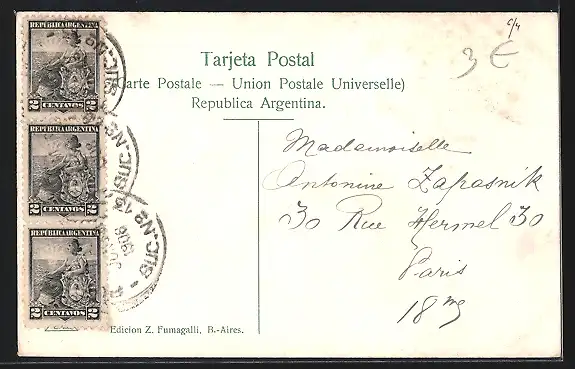 c/4
3 €
Tarjeta Postal
(Carte Postale — Union Postale Universelle)
Republica Argentina.
REPUBLICA ARGENTINA
2 CENTAVOS 2
REPUBLICA ARGENTINA
2 CENTAVOS 2
REPUBLICA ARGENTINA
2 CENTAVOS 2
SUC. Nº
1906
Mademoiselle
Antonine Zapasnik
30 Rue Hermel 30
Paris
18me
Edicion Z. Fumagalli, B.-Aires.